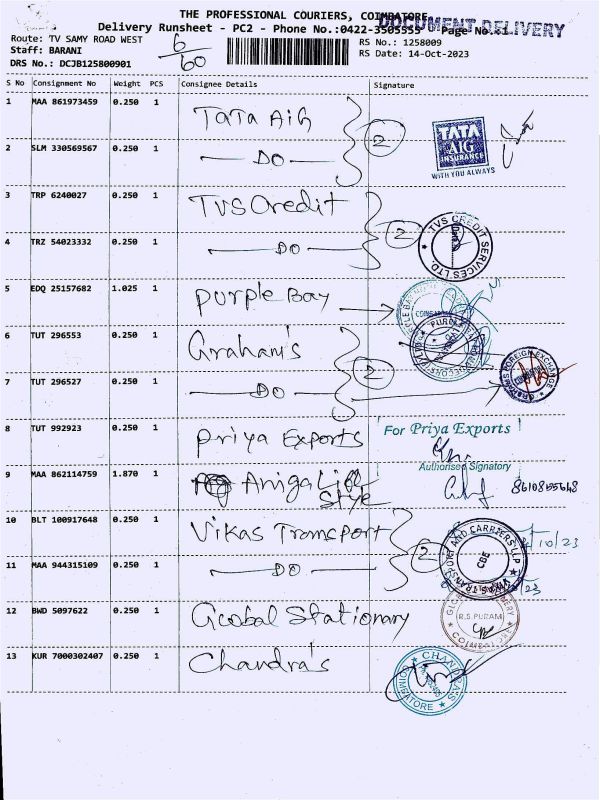 THE PROFESSIONAL COURIERS, COIMBATORE
DOCUMENT DELIVERY
Delivery Runsheet - PC2 - Phone No.:0422-3505555 Page No.:1
Route: TV SAMY ROAD WEST
6/60
RS No.: 1258009
Staff: BARANI
RS Date: 14-Oct-2023
DRS No.: DCJB125800901
S No Consignment No Weight PCS Consignee Details Signature
1 MAA 861973459 0.250 1 Tata Aig
2
TATA AIG INSURANCE
WITH YOU ALWAYS
2 SLM 330569567 0.250 1 — DO —
3 TRP 6240027 0.250 1 TVS Credit
2
TVS CREDIT SERVICES LTD.
4 TRZ 54023332 0.250 1 — DO —
5 EDQ 25157682 1.025 1 Purple Bay
6 TUT 296553 0.250 1 Graham's
2
7 TUT 296527 0.250 1 — DO —
8 TUT 992923 0.250 1 Priya Exports
For Priya Exports
Authorised Signatory
9 MAA 862114759 1.870 1 Aniga Life Style
8610855648
10 BLT 100917648 0.250 1 Vikas Transport
2
/10/23
TRANSPORT AND CARRIERS LLP
CBE
11 MAA 944315109 0.250 1 — DO —
/23
12 BWD 5097622 0.250 1 Global Stationary
R.S.PURAM
COIMBATORE
13 KUR 7000302407 0.250 1 Chandra's
CHANDRA'S
COIMBATORE